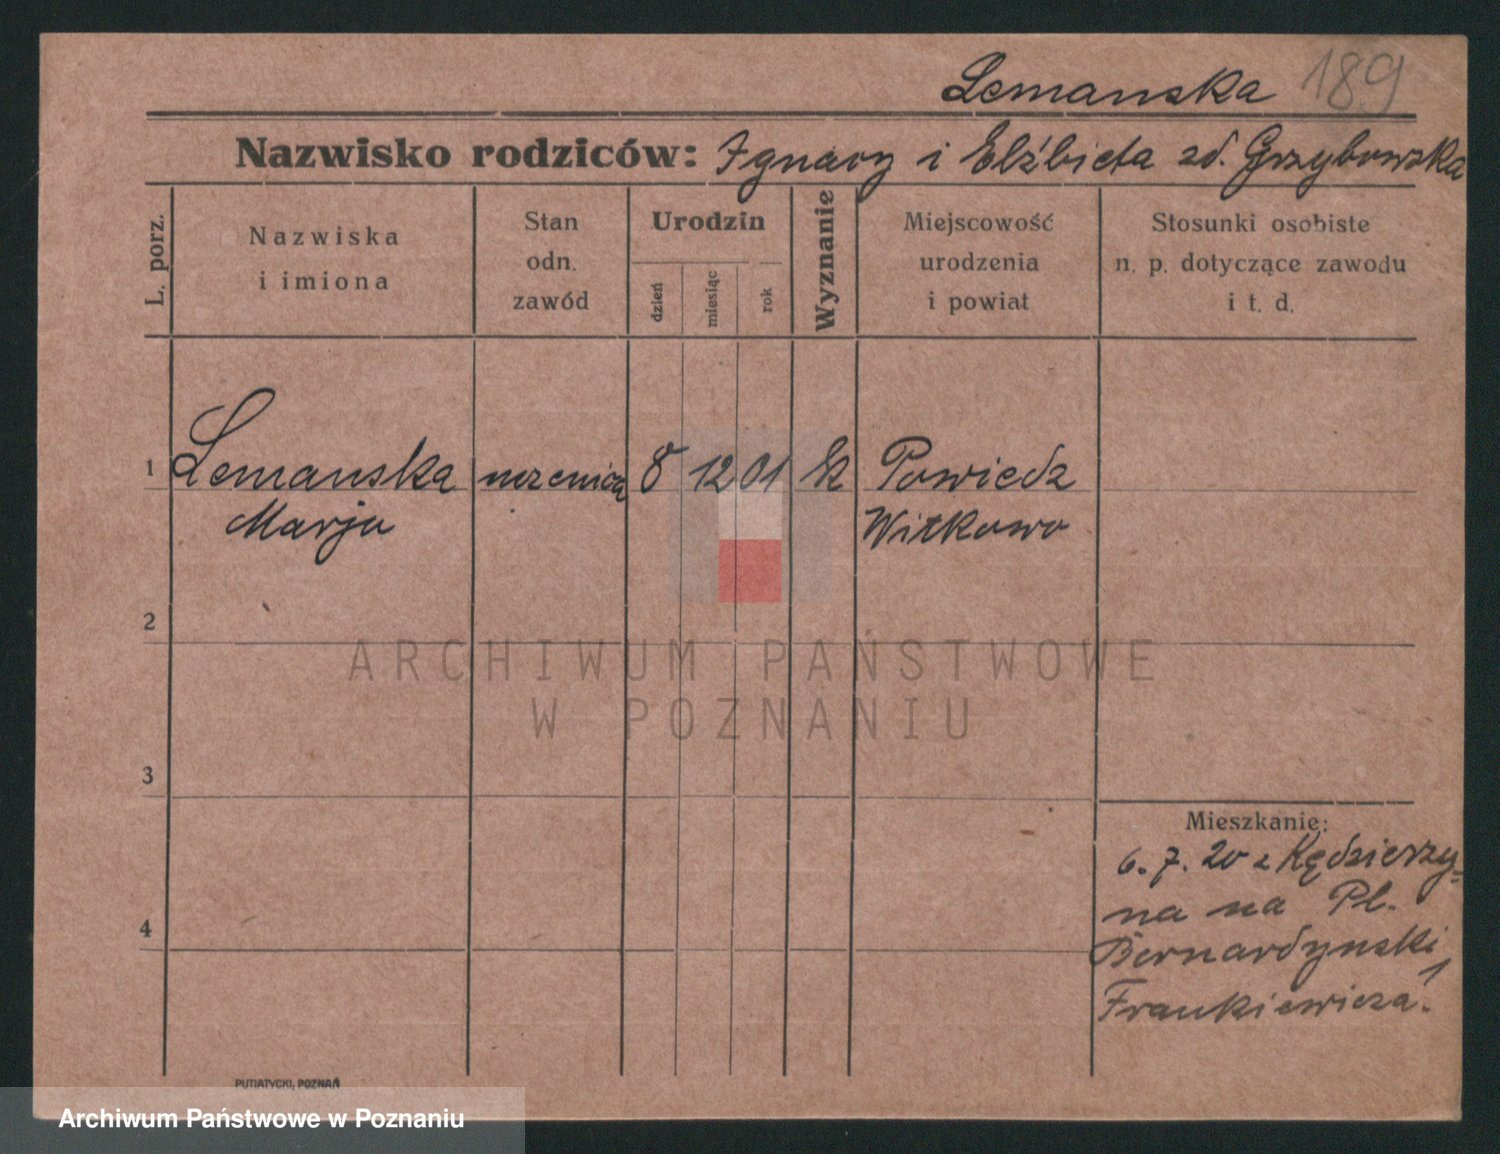 Lemanska 189
Nazwisko rodziców: Ignacy i Elżbieta zd. Grzybowska
L. porz.
Nazwiska
i imiona
Stan
odn.
zawód
Urodzin
dzień
miesiąc
rok
Wyznanie
Miejscowość
urodzenia
i powiat
Stosunki osobiste
n. p. dotyczące zawodu
i t. d.
1 Lemanska uczenica 8 12 01 Powiedz
Marja Witkowo
2
ARCHIWUM PAŃSTWOWE
W POZNANIU
3
Mieszkanie:
6. 7. 20 z Kędzierzy=
na na Pl.
4
Bernardynski 1
Frankiewicza.
PUTIATYCKI, POZNAŃ
Archiwum Państwowe w Poznaniu